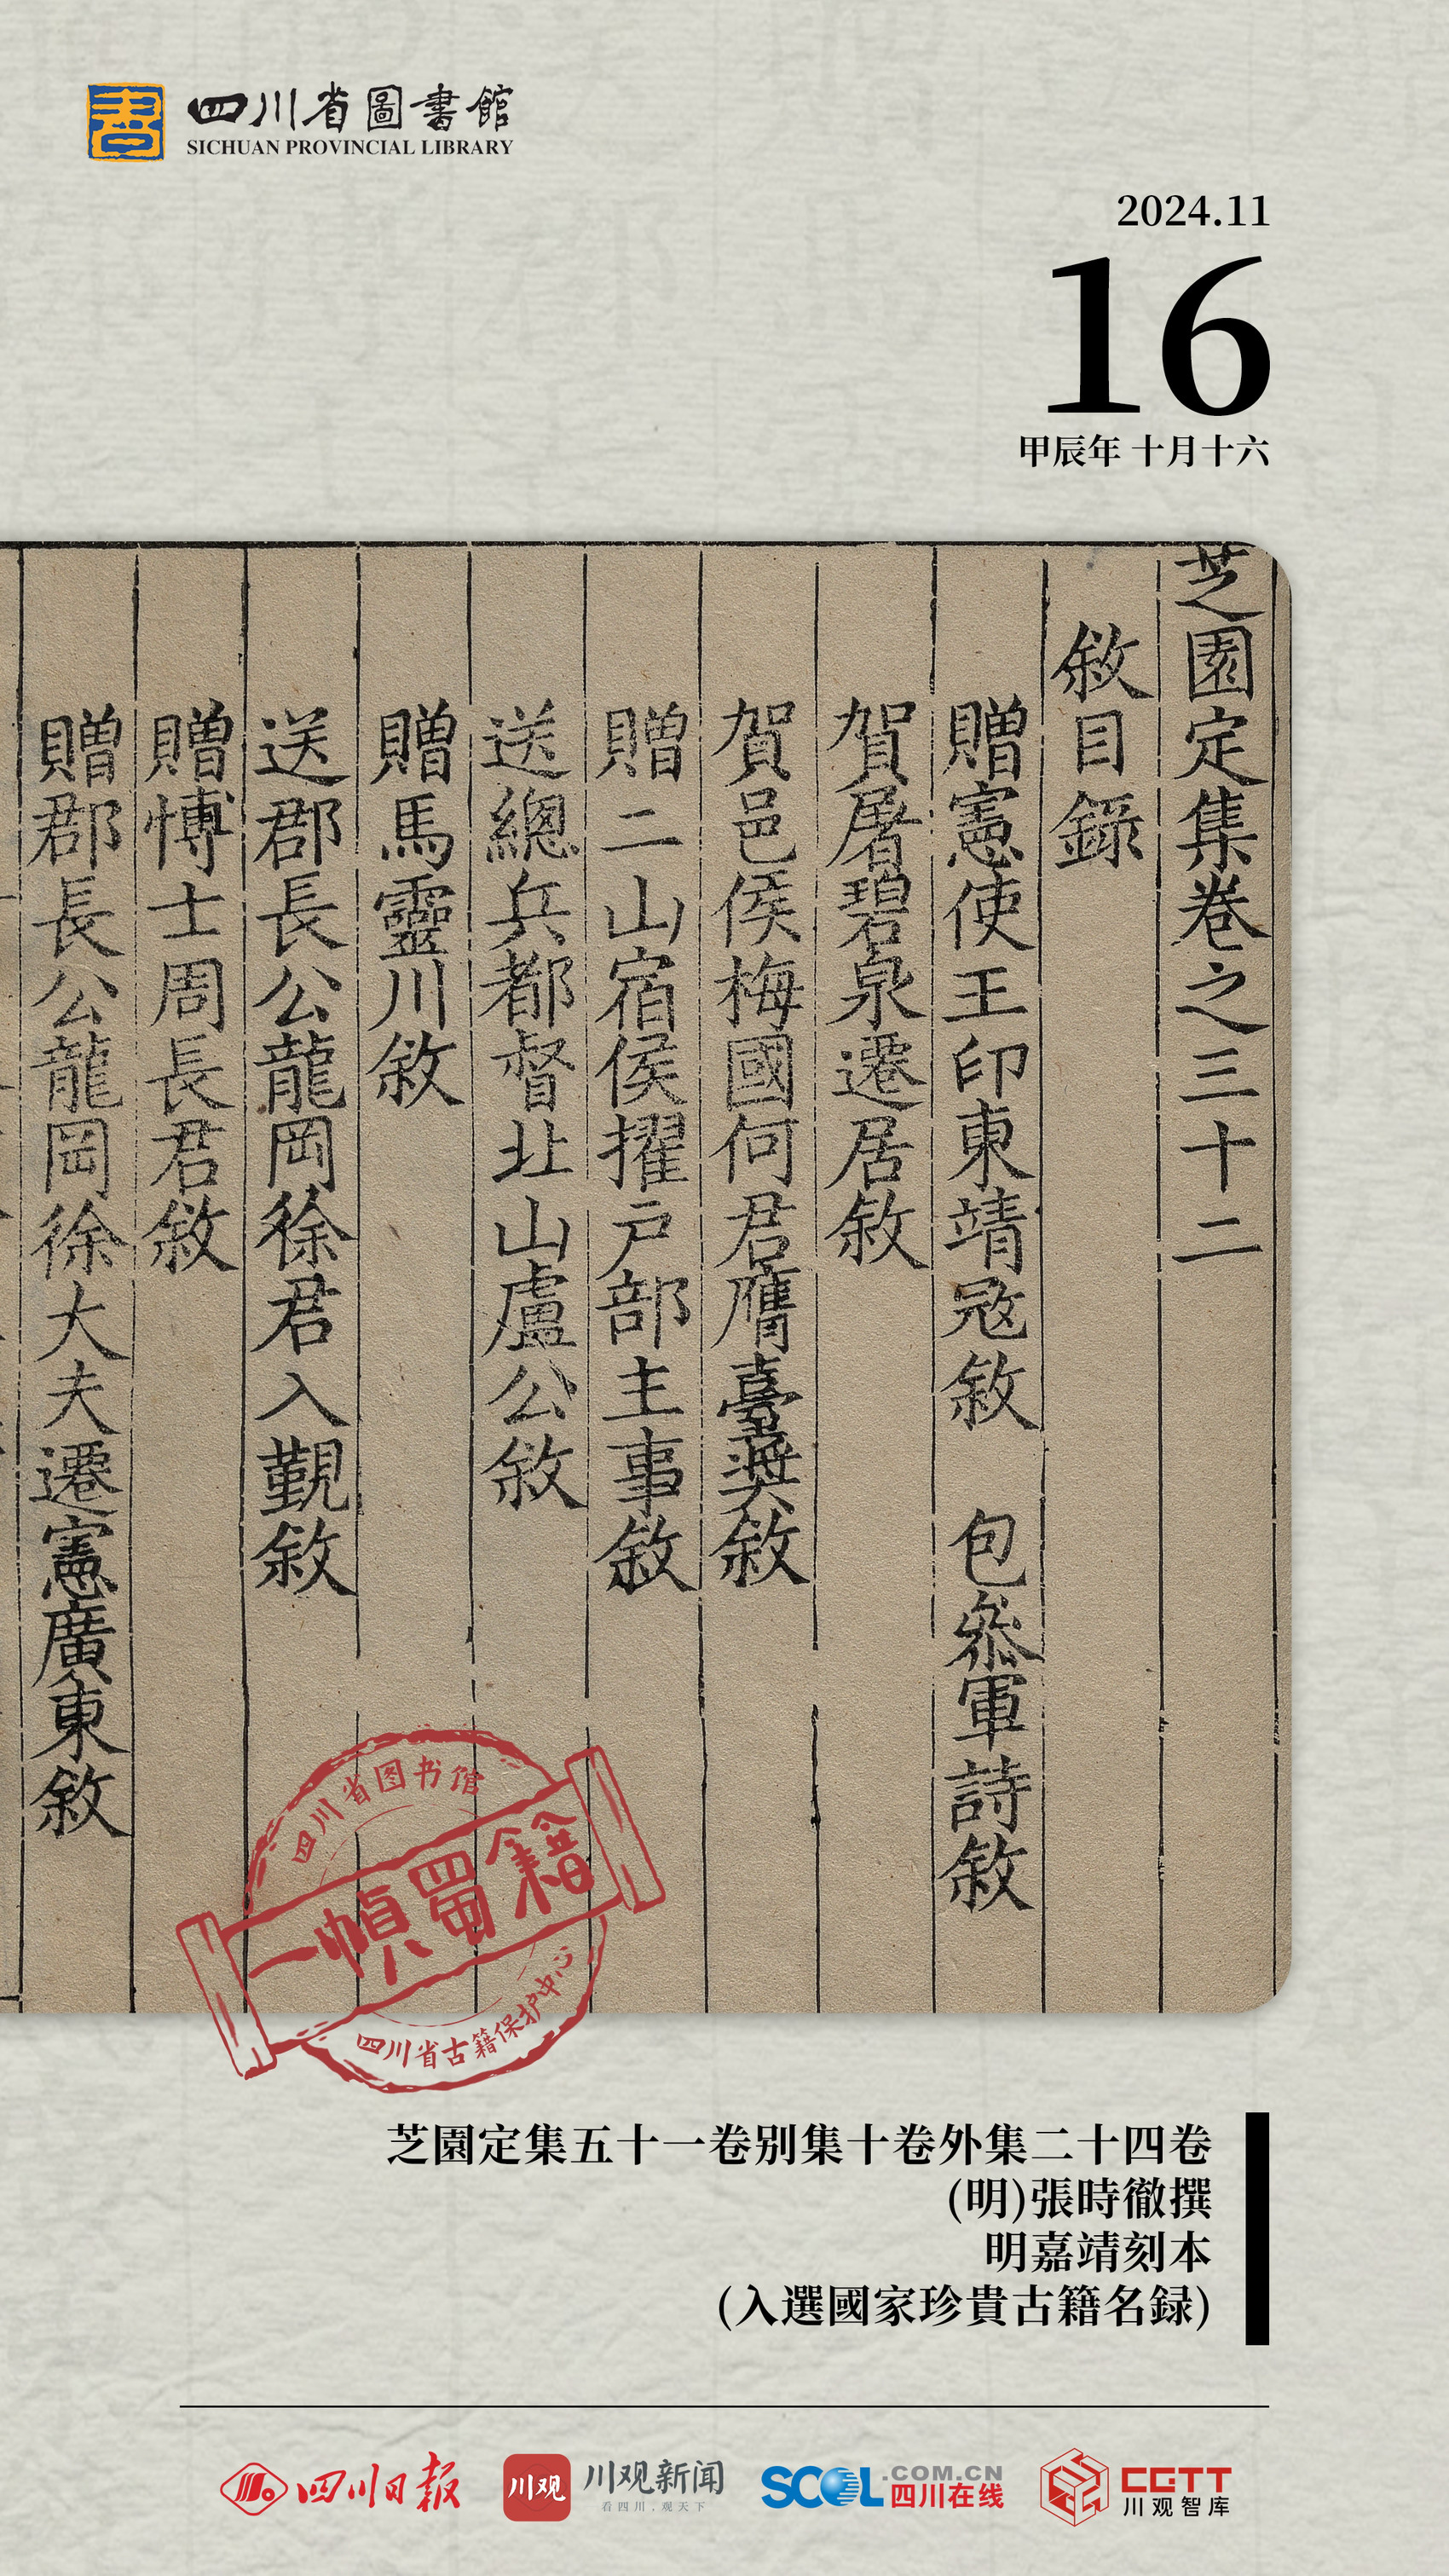 四川省圖書館
SICHUAN PROVINCIAL LIBRARY
2024.11
16
甲辰年 十月十六
芝園定集卷之三十二
敘目錄
贈憲使王印東靖寇敘 包叅軍詩敘
賀屠碧泉遷居敘
賀邑侯梅國何君膺臺奬敘
贈二山宿侯擢戶部主事敘
送總兵都督北山盧公敘
贈馬靈川敘
送郡長公龍岡徐君入覲敘
贈博士周長君敘
贈郡長公龍岡徐大夫遷憲廣東敘
四川省图书馆
一幀蜀籍
四川省古籍保护中心
芝園定集五十一卷别集十卷外集二十四卷
(明)張時徹撰
明嘉靖刻本
(入選國家珍貴古籍名録)
四川日报
川观
川观新闻
看四川,观天下
SCOL.COM.CN
四川在线
CGTT
川观智库